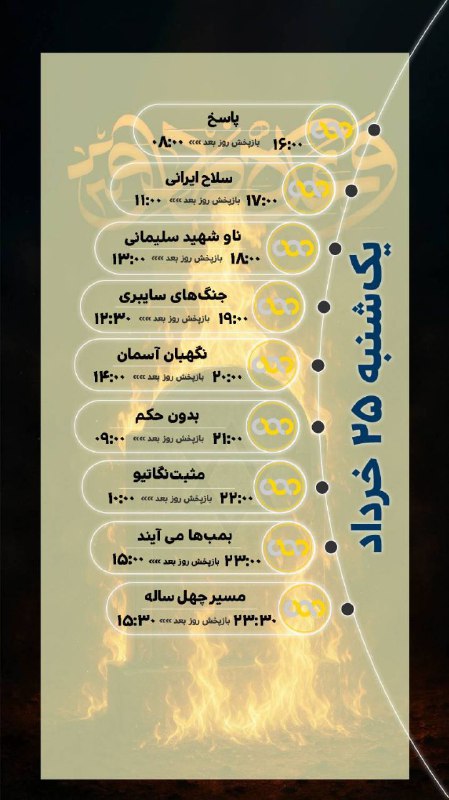 یک‌شنبه ۲۵ خرداد
پاسخ
۱۶:۰۰ بازپخش روز بعد »» ۰۸:۰۰
سلاح ایرانی
۱۷:۰۰ بازپخش روز بعد »» ۱۱:۰۰
ناو شهید سلیمانی
۱۸:۰۰ بازپخش روز بعد »» ۱۳:۰۰
جنگ‌های سایبری
۱۹:۰۰ بازپخش روز بعد »» ۱۲:۳۰
نگهبان آسمان
۲۰:۰۰ بازپخش روز بعد »» ۱۴:۰۰
بدون حکم
۲۱:۰۰ بازپخش روز بعد »» ۰۹:۰۰
مثبت‌نگاتیو
۲۲:۰۰ بازپخش روز بعد »» ۱۰:۰۰
بمب‌ها می آیند
۲۳:۰۰ بازپخش روز بعد »» ۱۵:۰۰
مسیر چهل ساله
۲۳:۳۰ بازپخش روز بعد »» ۱۵:۳۰